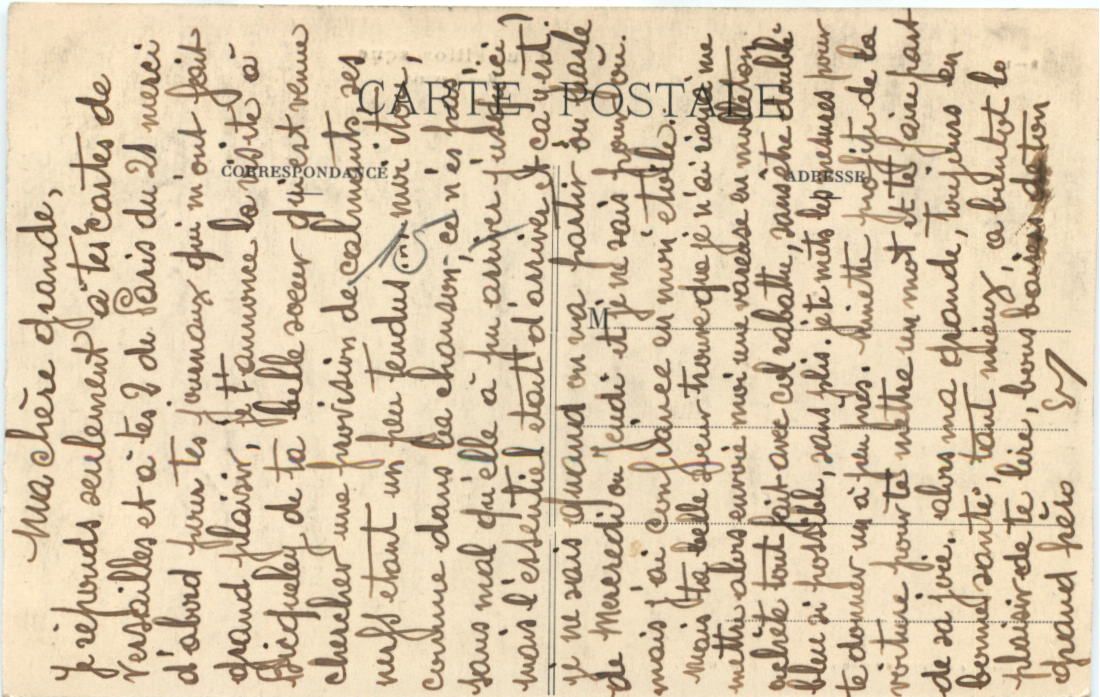 CARTE POSTALE
CORRESPONDANCE
ADRESSE
M
Ma chère grande,
je réponds seulement à tes cartes de
Versailles et à tes 2 de Paris du 21 merci
d'abord pour tes journaux qui m'ont fait
grand plaisir, je t'annonce la visite à
de ta belle soeur qui est venue
chercher une provision de calmants ses
nerfs étant un peu tendus
comme dans la chanson, ce n'est pas
sans mal qu'elle a pu arriver jusqu'ici
mais l'essentiel étant d'arriver et ça y est!
je ne sais quand on va partir où parle
de Mercredi ou Jeudi et je ne sais pour où.
mais j'ai confiance en mon étoile.
Mais ta belle soeur trouve que je n'ai rien à me
mettre alors envoie moi une vareuse en molleton
achète tout fait avec col rabattu, sans être doublé
bleu si possible, sans plis. je te mets les mesures pour
te donner un à peu près. profite de la
voiture pour te mettre un mot et te faire part
de sa joie. alors ma grande, toujours en
bonne santé, tant mieux, à bientôt le
plaisir de te lire, bons baisers de ton
grand